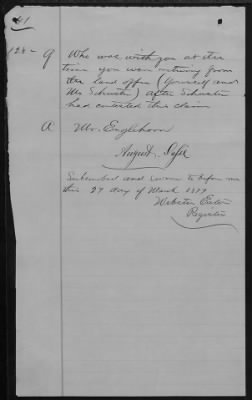 41
128- Q Who was with you at the
time you were returning from
the land office (Yourself and
Mr Schuster) after Schuster
had entered this claim
A Mr. Englehorn
August
Subscribed and sworn to before me
this 27 day of March 1877
Webster Eaton
Register